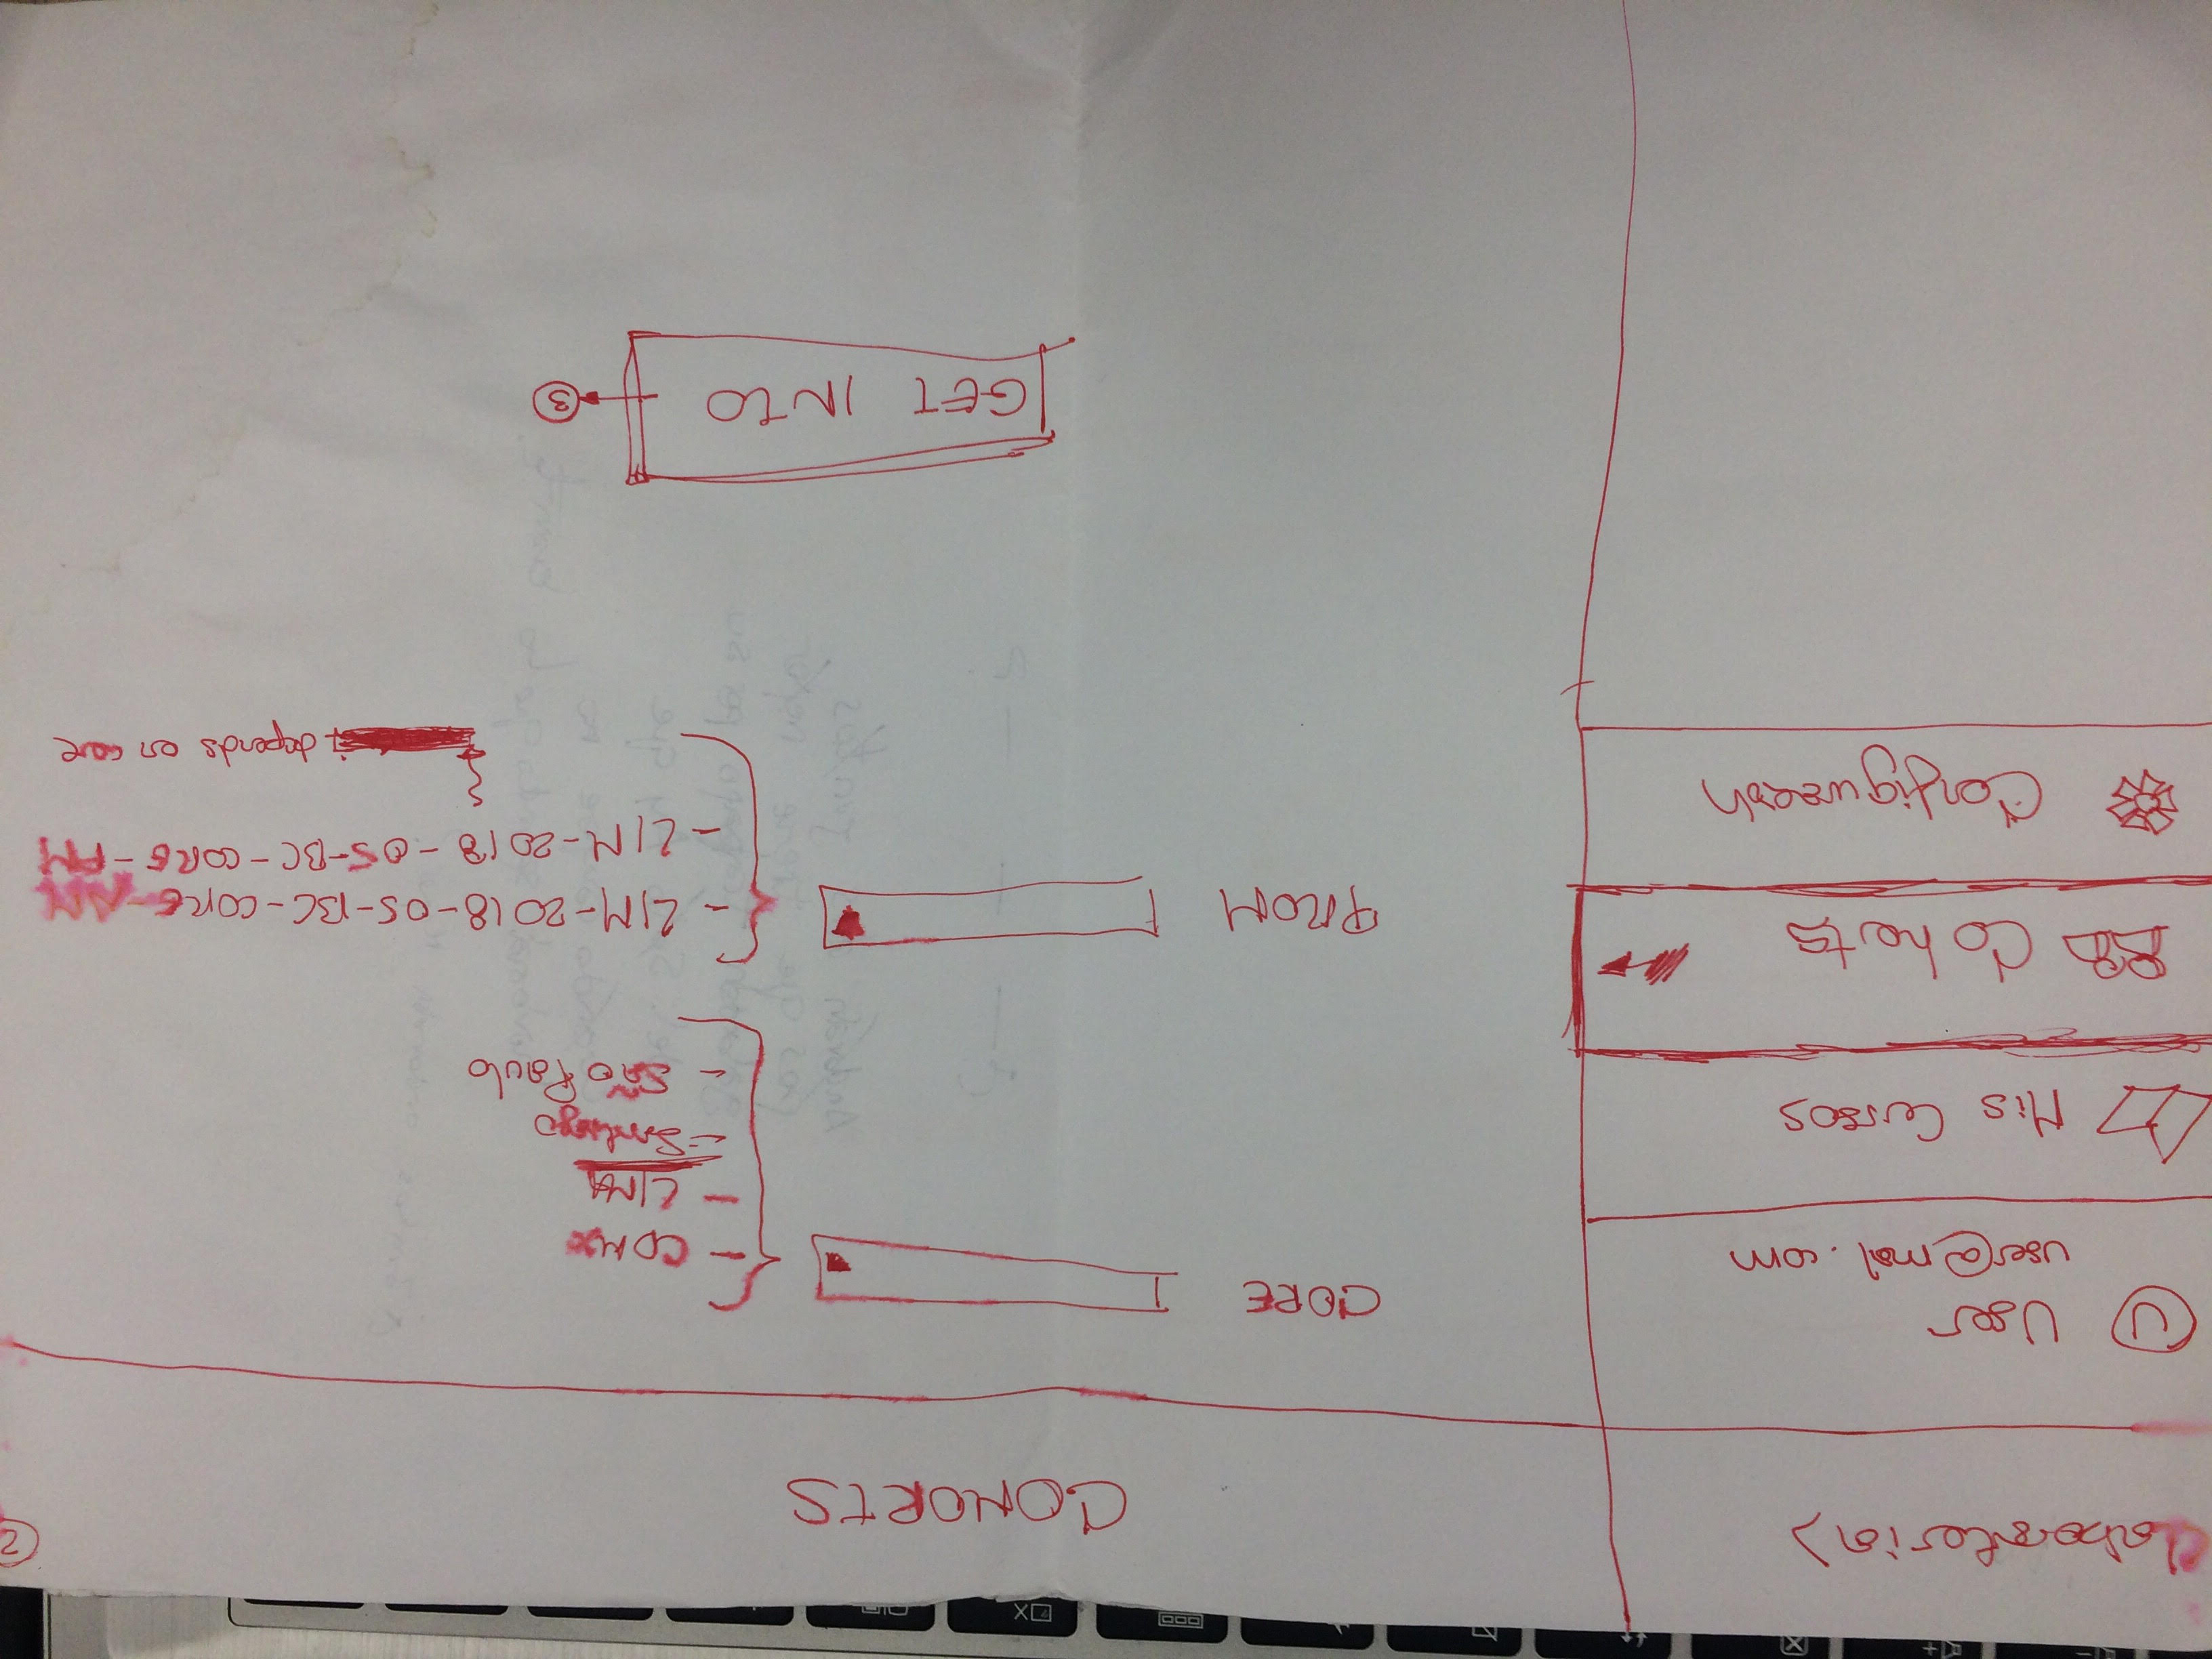 Laboratoria>
COHORTS
2
U User
user@mail.com
Mis Cursos
Cohorts
Configuración
CORE
- CDMX
- LIMA
- Santiago
- São Paulo
PROM
- LIM-2018-05-BC-CORE-AM
- LIM-2018-05-BC-CORE-PM
depends on core
GET INTO
3